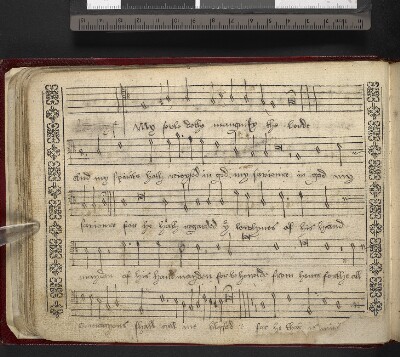 My soule dothe mangnify the lorde
And my spirite hath reioysed in god my savioure in god my
savioure for he hath regarded yͤ lowlynes of his hand
mayden of his hand mayden for behold from hence forthe all
generacyons shall call me blyssed for he that is